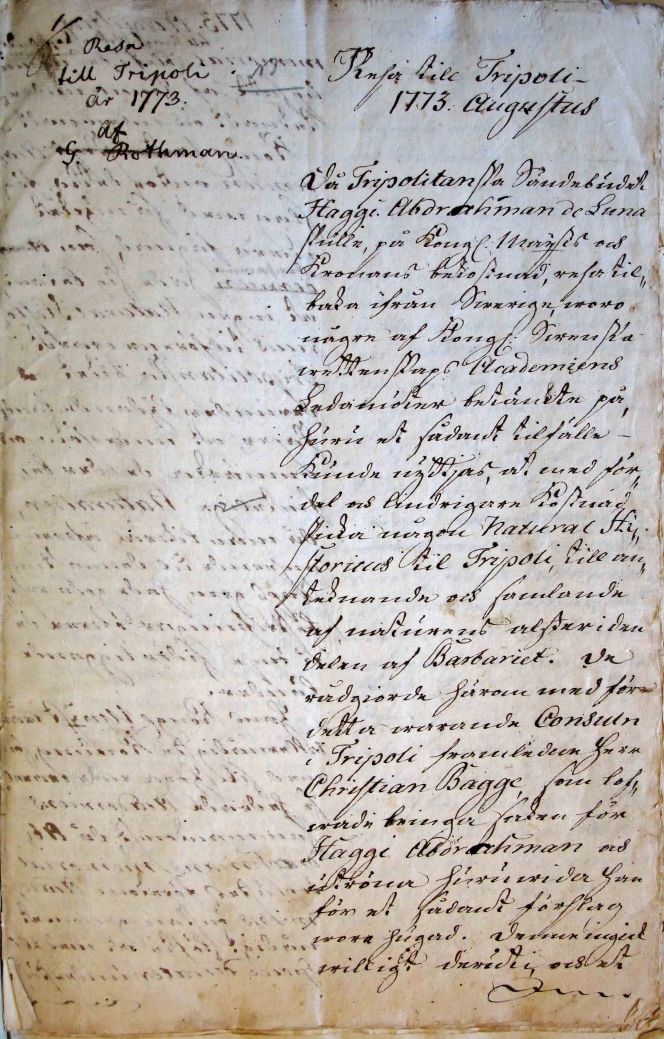 Resa
till Tripoli
år 1773.
af
G Rothman.
Resa till Tripoli
1773. Augustus
Då Tripolitanska Sändebudet
Haggi Abdrahman de Luna
skulle, på Kongl. Maÿsts och
Kronans bekostnad, resa til-
baka ifrån Swerige, woro
någre af Kongl. Swenska
wettenskaps Academiens
Ledamöter betänckte på,
huru et sådant tilfälle
kunde nyttjas, at med för-
del och lindrigare kostnad
skicka någon Natural Hi-
storicus til Tripoli, till an-
tecknande och samlande
af naturens alster i den
delen af Barbariet. De
rådgiorde härom med för
detta warande Consuln
i Tripoli framledne Herr
Christian Bagge, som lof-
wade bringa saken för
Haggi Abdrahman och
utröna huruwida han
för et sådant förslag
wore hugad. Denne ingick
willigt deruti, och et